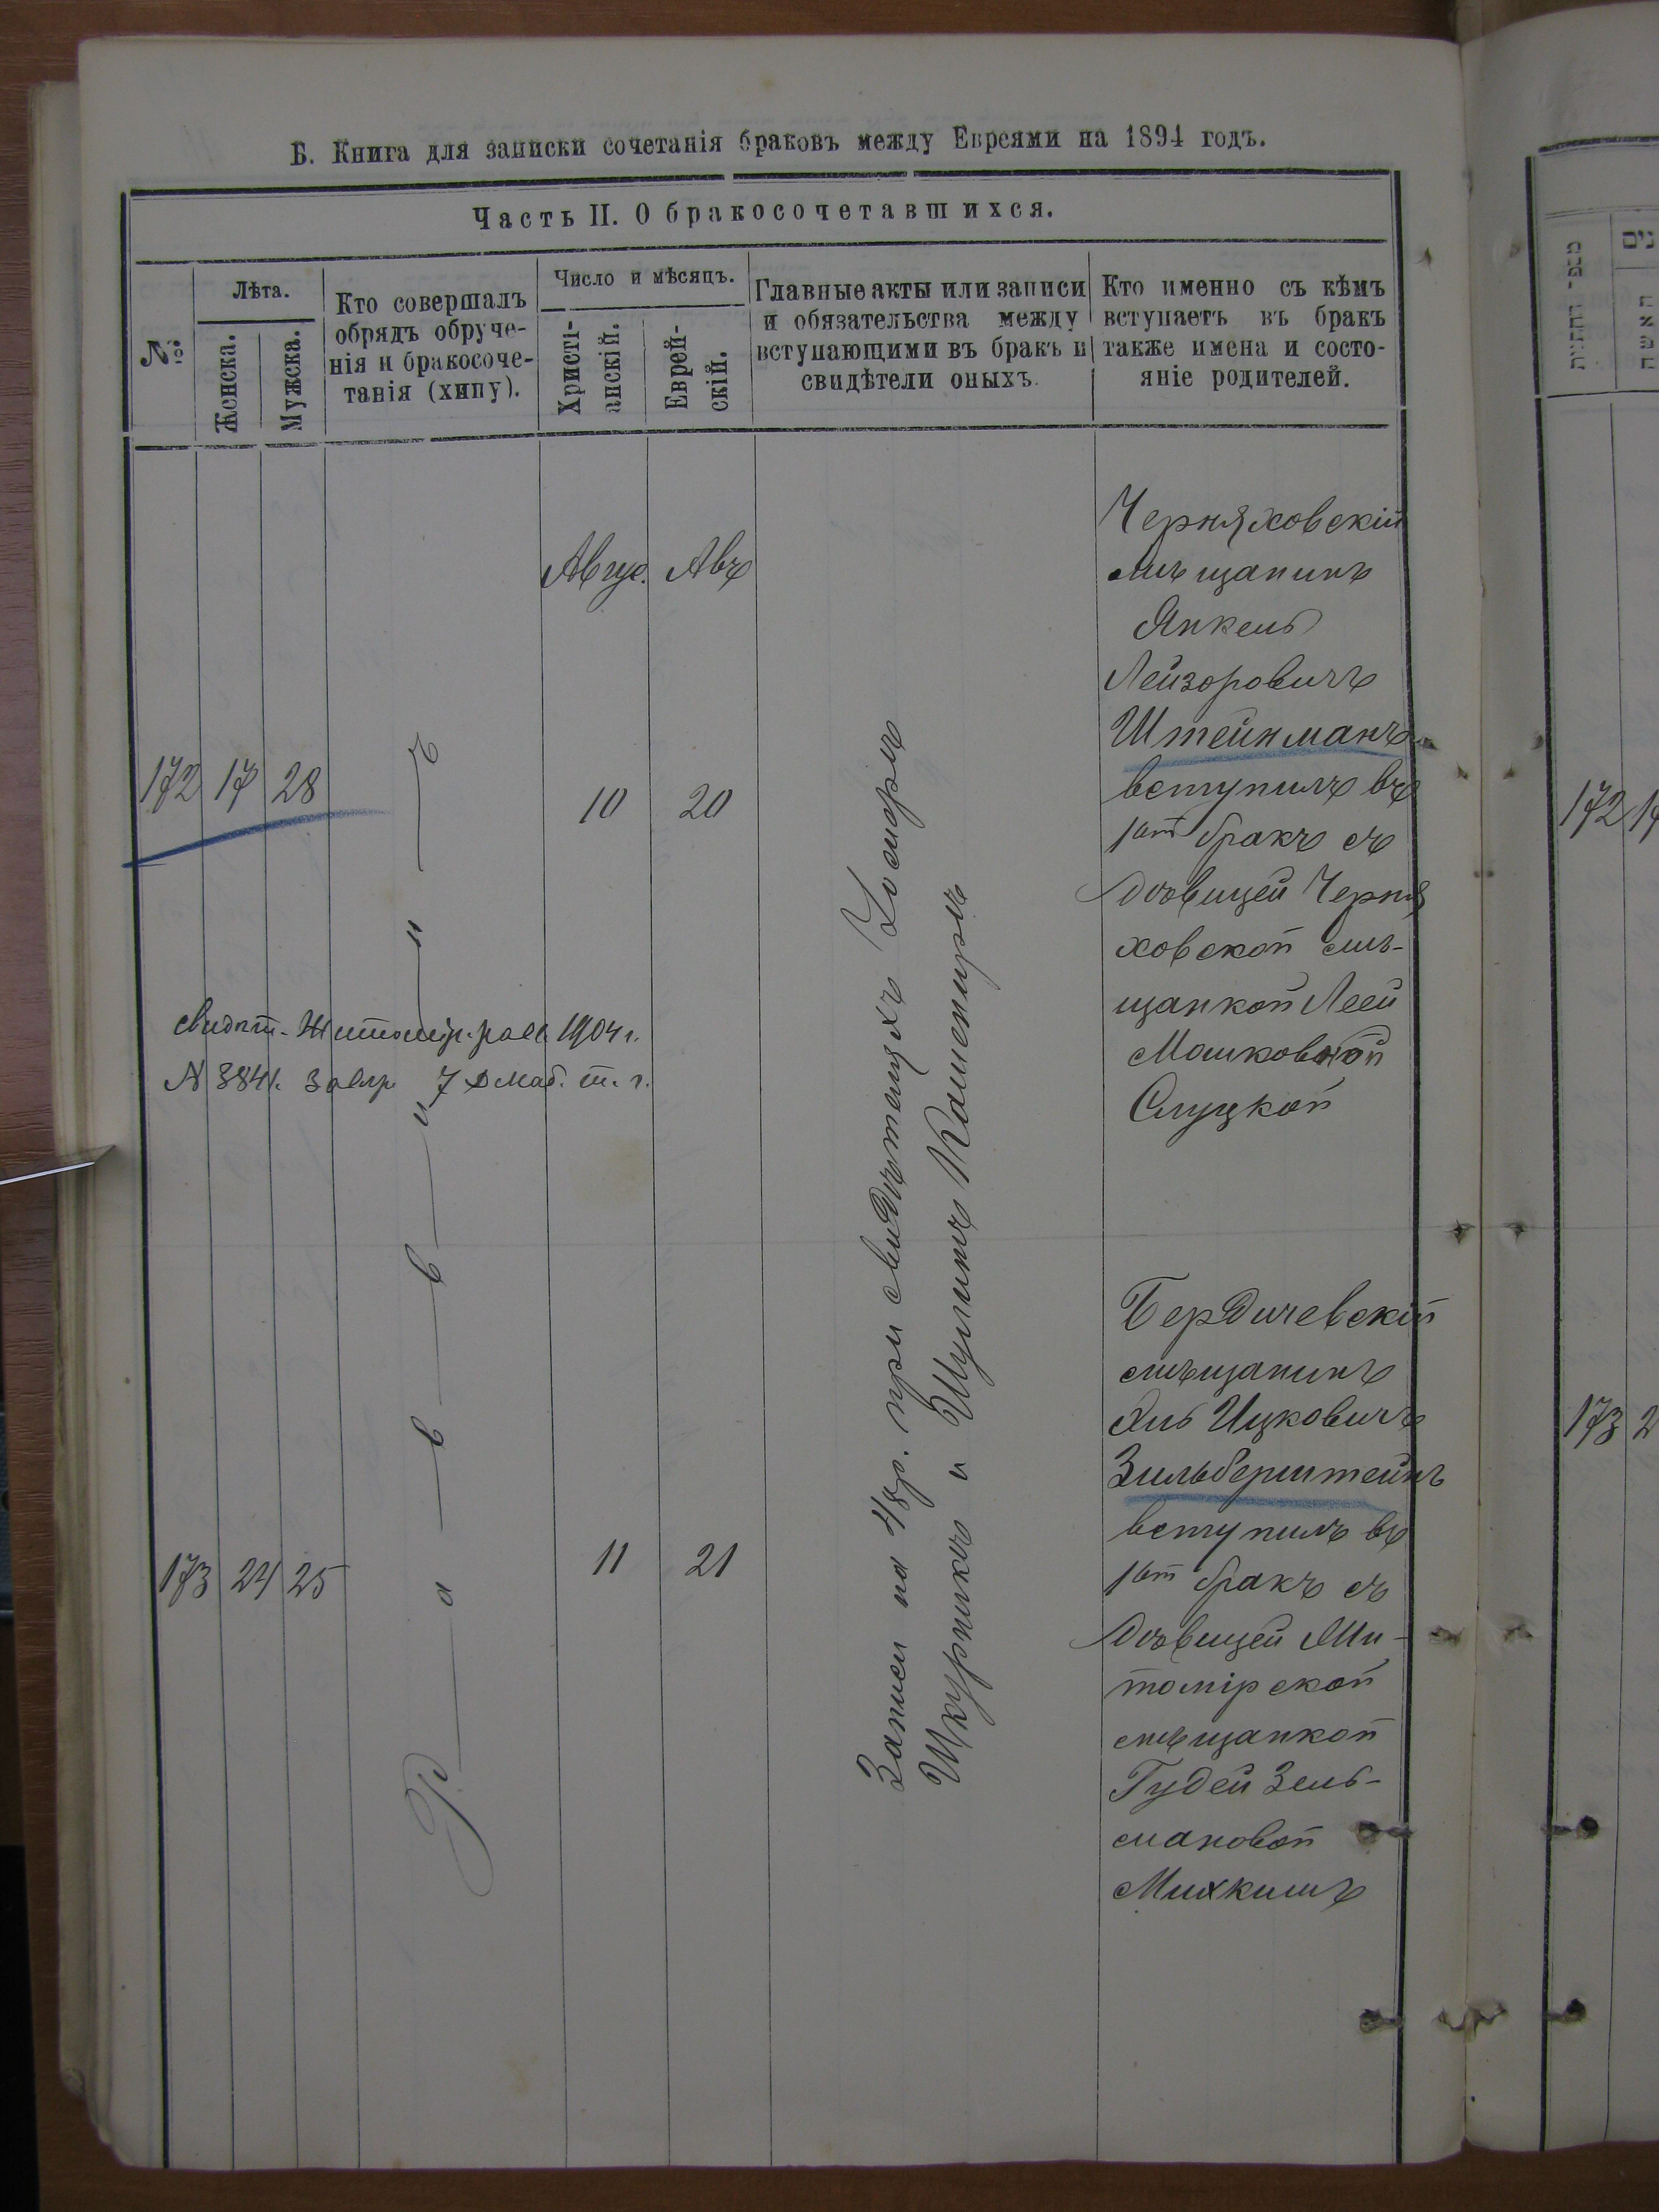 Б. Книга для записки сочетанія браковъ между Евреями на 1894 годъ.
Часть II. О бракосочетавшихся.
№
Лѣта.
Женска.
Мужска.
Кто совершалъ
обрядъ обруче-
нія и бракосоче-
танія (хипу).
Число и мѣсяцъ.
Христі-
анскій.
Еврей-
скій.
Главные акты или записи
и обязательства между
вступающими въ бракъ и
свидѣтели оныхъ.
Кто именно съ кѣмъ
вступаетъ въ бракъ
также имена и состо-
яніе родителей.
Авгус. Авъ
172 17 28
10 20
Черняховскій
мѣщанинъ
Янкель
Лейзоровичъ
Штейнманъ
вступилъ въ
1ый бракъ съ
дѣвицей Черня
ховской мѣ-
щанкой Леей
Мошковной
Слуцкой
свидѣт. Житомір. 1904 г.
N 3841.
Раввинъ
Записи на 48 р. при свидѣтеляхъ
Шкурникъ и Шулимъ Каменецръ
173 24 25
11 21
Бердичевскій
мѣщанинъ
Хиль Ицковичъ
Зильберштейнъ
вступилъ въ
1ый бракъ съ
дѣвицей Жи-
томірской
мѣщанкой
Гудей Зель-
мановой
172
173